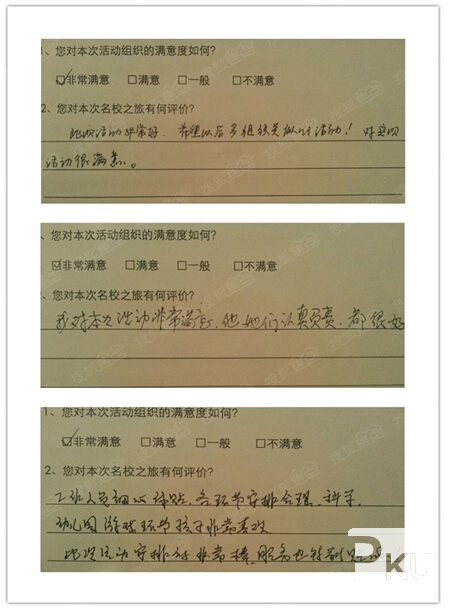 1、您对本次活动组织的满意度如何?
☑非常满意 □满意 □一般 □不满意
2、您对本次名校之旅有何评价?
此次活动非常好，希望以后多组织类似的活动！对这次
活动很满意。
、您对本次活动组织的满意度如何?
☑非常满意 □满意 □一般 □不满意
、您对本次名校之旅有何评价?
我对本次活动非常满意，他她们认真负责，都很好
1、您对本次活动组织的满意度如何?
☑非常满意 □满意 □一般 □不满意
2、您对本次名校之旅有何评价?
工作人员细心体贴，各环节安排合理、科学，
幼儿园游戏环节孩子非常喜欢，
此次活动安排的非常棒，服务也特别
PKU